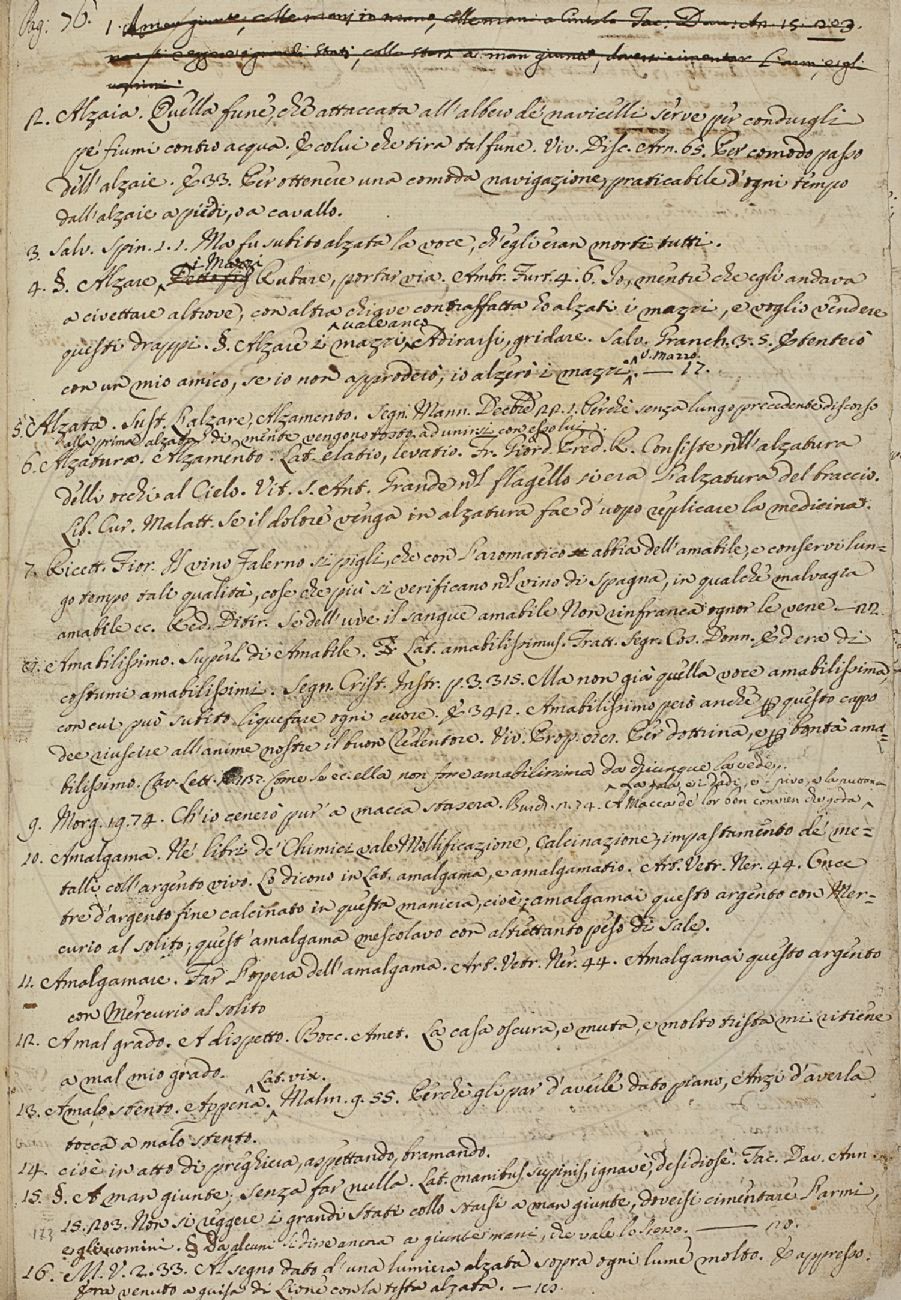 Pag: 76.
1. A man giunte, colle mani in mano, colle mani a Cintola Tac. Dav. An. 15. 203.
non si reggere i grandi Stati, collo starsi a man giunte, doversi cimentar l'armi, e gli
uomini.
2. Alzaia. Quella fune, che attaccata all'albero de' navicelli serve per condurgli
pe' fiumi contro acqua. E colui che tira tal fune. Viv. Disc. Arn. 65. Per comodo passo
dell'alzaie. E 33. Per ottenere una comoda navigazione, praticabile d'ogni tempo
dall'alzaie a piedi, o a cavallo.
3. Salv. Spin. 1. 1. Ma fu subito alzata la voce, ch'egli eran morti tutti.
4. §. Alzare, i Mazzi Rubare, portar via. Ambr. Furt. 4. 6. Io, mentre che egli andava
a civettare altrove, con altra chiave contraffatta ho alzati i mazzi, e voglio vendere
questi drappi. §. Alzare i mazzi, vale anco Adirarsi, gridare. Salv. Granch. 3. 5. E tenterò
con un mio amico, se io non approderò, io alzerò i mazzi. V. Mazzo. — 17.
5. Alzata. Sust. L'alzare, Alzamento. Segn. Mann. 1. Perchè senza lungo precedente discorso
alla prima alzata di mente vengono tosto ad unirsi con essolui.
6. Alzatura. Alzamento. Lat. elatio, levatio. Fr. Giord. Pred. R. Consiste nell'alzatura
delli occhi al Cielo. Vit. S. Ant. Grande nel flagello si era l'alzatura del braccio.
Lib. Cur. Malatt. Se il dolore venga in alzatura fae d'uopo replicare la medicina.
7. Ricett. Fior. Il vino Falerno si pigli, che con l'aromatico abbia dell'amabile, e conservi lun-
go tempo tale qualità, cose che più si verificano nel vino di Spagna, in qualche malvagia
amabile ec. Red. Ditir. Se dell'uve il sangue amabile Non rinfranca ognor le vene — 22.
8. Amabilissimo. Superl. di Amabile. Lat. amabilissimus. Tratt. Segr. Cos. Donn. Ed era di
costumi amabilissimi. Segn. Crist. Instr. p. 3. 315. Ma non già quella voce amabilissima
con cui può subito liquefare ogni cuore. E 342. Amabilissimo però anche per questo capo
dee riuscire all'anime nostre il buon Redentore. Viv. Prop. Per dottrina, e per bontà ama-
bilissimo. Cav. Lett. Come se ella non fosse amabilissima da chiunque la vede.
9. Morg. 19. 74. Ch'io cenerò pur' a macca stasera. Burch. 2. 74. A Macca de' lor ben convien ch'io goda
10. Amalgama. Ne' libri de' Chimici vale Mollificazione, Calcinazione, impastamento de' me-
talli coll'argento vivo. Lo dicono in Lat. amalgama, e amalgamatio. Art. Vetr. Ner. 44. Once
tre d'argento fine calcinato in questa maniera, cioè, amalgamai questo argento con Mer-
curio al solito, quest'amalgama mescolavo con altrettanto peso di Sale.
11. Amalgamare. Far l'opera dell'amalgama. Art. Vetr. Ner. 44. Amalgamai questo argento
con Mercurio al solito
12. A mal grado. A dispetto. Bocc. Amet. La casa oscura, e muta, e molto trista mi ritiene
a mal mio grado.
13. A malo stento. Appena. Lat. vix. Malm. 9. 55. Perchè gli par d'averle dato piano, Anzi d'averla
tocca a malo stento.
14. cioè in atto di preghiera, aspettando, bramando.
15. §. A man giunte, senza far nulla. Lat. manibus suppinis, ignave, desidiose. Tac. Dav. Ann
15. 203. Non si reggere i grandi Stati collo starsi a man giunte, doversi cimentare l'armi,
e gli uomini. § Da alcuni si dice ancora a giunte mani, che vale lo stesso. — 20.
16. M. V. 2. 33. Al segno dato d'una lumiera alzata sopra ogni lume molto. E appresso:
Era venuto a guisa di Lione con la testa alzata. — 10.